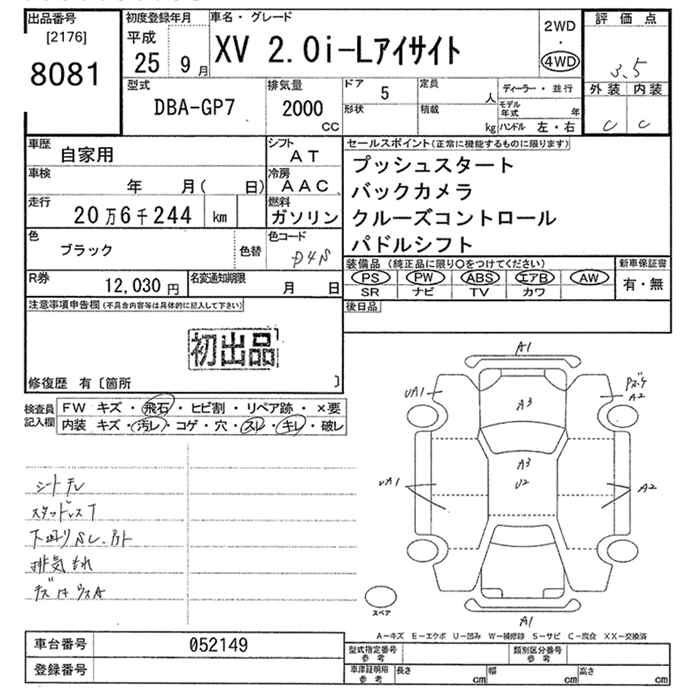 出品番号
[2176]
8081
初度登録年月
平成
25 9月
車名・グレード
XV 2.0i-Lアイサイト
2WD
・
4WD
評価点
3.5
外装 内装
C C
型式
DBA-GP7
排気量
2000
CC
ドア 5
形状
定員 人
積載 kg
ディーラー・並行
モデル年式 年
ハンドル 左・右
車歴 自家用
シフト AT
車検 年 月( 日)
冷房 AAC
走行 20万6千244 km
燃料 ガソリン
色 ブラック 色替
色コード D4S
R券 12,030円
名変通知期限 月 日
セールスポイント(正常に機能するものに限ります)
プッシュスタート
バックカメラ
クルーズコントロール
パドルシフト
装備品(純正品に限り○をつけてください)
PS PW ABS エアB AW
SR ナビ TV カワ
新車保証書
有・無
後日品
注意事項申告欄(不具合内容等は具体的に記入して下さい)
初出品
修復歴 有〔箇所 〕
検査員記入欄
FW キズ・飛石・ヒビ割・リペア跡・×要
内装 キズ・汚レ・コゲ・穴・スレ・キレ・破レ
排気もれ
A1
UA1
A3
A2
A3
U2
A2
A1
スペア
A-キズ E-エクボ U-凹み W-補修跡 S-サビ C-腐食 XX-交換済
車台番号 052149
登録番号
型式指定番号 参考
類別区分番号 参考
車庫証明用 参考 長さ cm 幅 cm 高さ cm